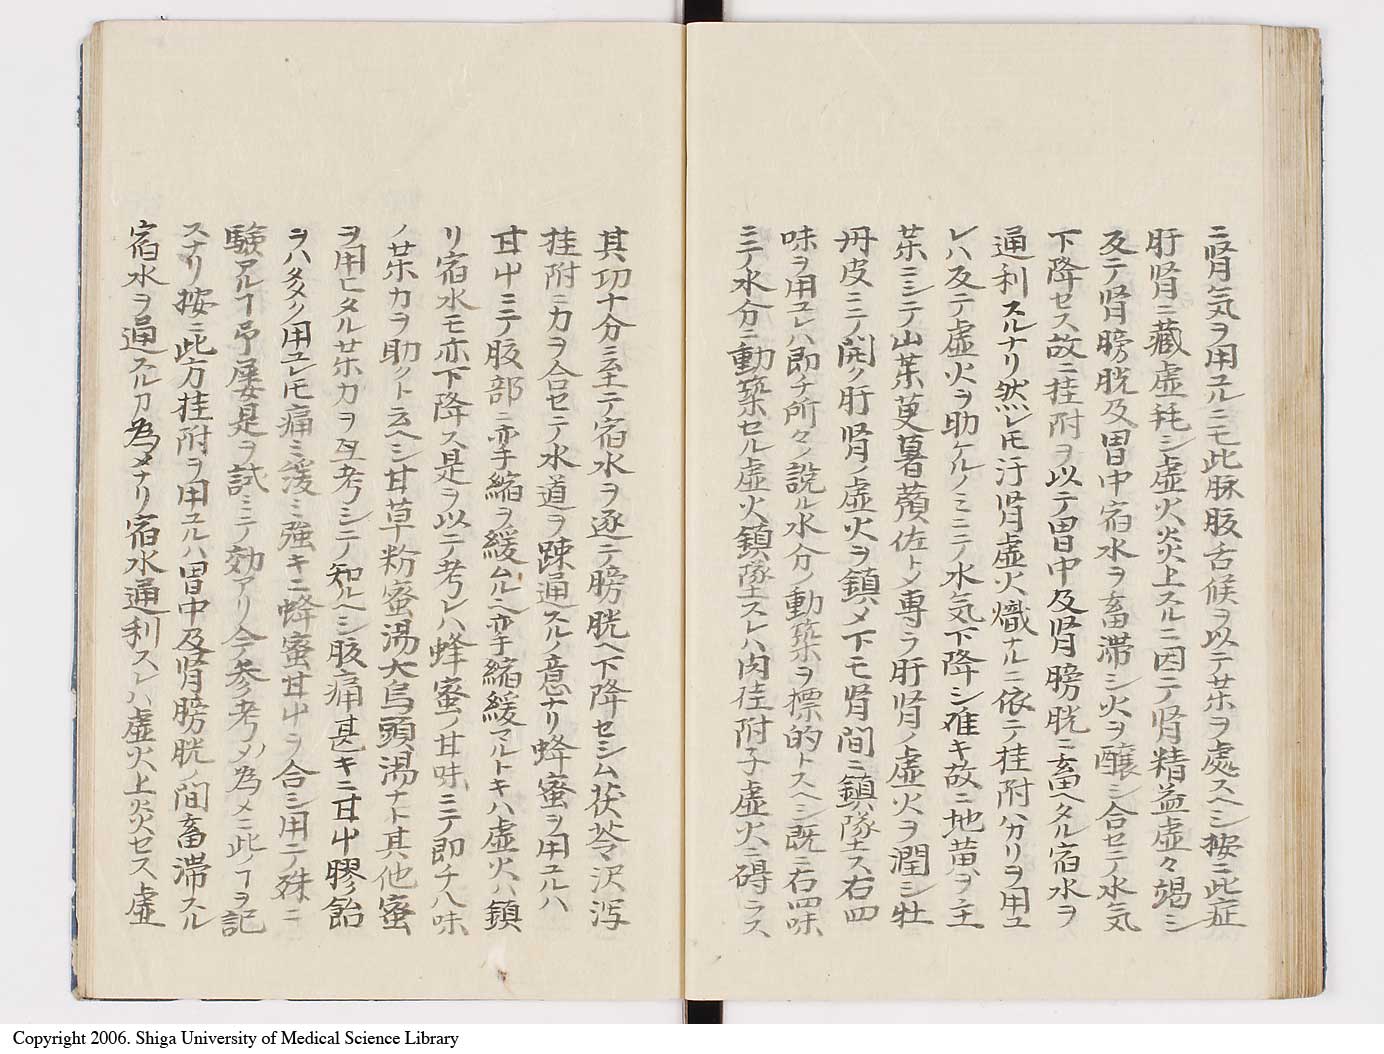 ニ腎気ヲ用ユルニモ此脉腹舌候ヲ以テ藥ヲ處スヘシ按ニ此症
肝腎ニ藏虚耗シ虚火炎上スルニ因テ腎精益虚々竭シ
反テ腎膀胱及胃中宿水ヲ畜滞シ火ヲ釀シ合セテ水気
下降セス故ニ桂附ヲ以テ胃中及腎膀胱ニ畜ヘタル宿水ヲ
通利スルナリ然レ𪜈汙腎虚火熾ナルニ依テ桂附ハカリヲ用ユ
レハ反テ虚火ヲ助ケルノミニテ水気下降シ难キ故ニ地黄ヲ主
藥ミシテ山茱萸薯蕷佐トメ専ラ肝腎ノ虚火ヲ潤シ牡
丹皮ミテ開ク肝腎ノ虚火ヲ鎮メ下モ腎間ニ鎮墜ス右四
味ヲ用ユレハ即チ所々ノ説ル水分ノ動築ヲ標的トスヘシ既ニ右四味
ニテノ水分ニ動築セル虚火鎮墜スレハ肉桂附子虚火ニ碍ラス
其功十分ミ至テ宿水ヲ逐テ膀胱ヘ下降セシム茯苓沢泻
桂附ニ力ヲ合セテ水道ヲ疎通スルノ意ナリ蜂蜜ヲ用ユルハ
甘中ミテ腹部ニ亦手縮ヲ緩ムルヘ亦手縮緩マルトキハ虚火ハ鎮
リ宿水モ亦下降ス是ヲ以テ考レハ蜂蜜ノ甘味ミテ即チ八味
ノ藥力ヲ助クト云ヘシ甘草粉蜜湯大烏頭湯ナト其他蜜
ヲ用ヒタル藥力ヲ互考シテ知ルヘシ腹痛甚キニ甘中膠飴
ヲハ多ク用ユレ𪜈痛ミ緩ミ強キニ蜂蜜甘中ヲ合シ用テ殊ニ
験アルヿ予屡是ヲ試ミテ効アリ今参考ノ為メニ此ノヿヲ記
スナリ按ニ此方桂附ヲ用ユルハ胃中及腎膀胱ノ間畜滞スル
宿水ヲ通スル力為メナリ宿水通利スレハ虚火上炎セス虚
Copyright 2006. Shiga University of Medical Science Library